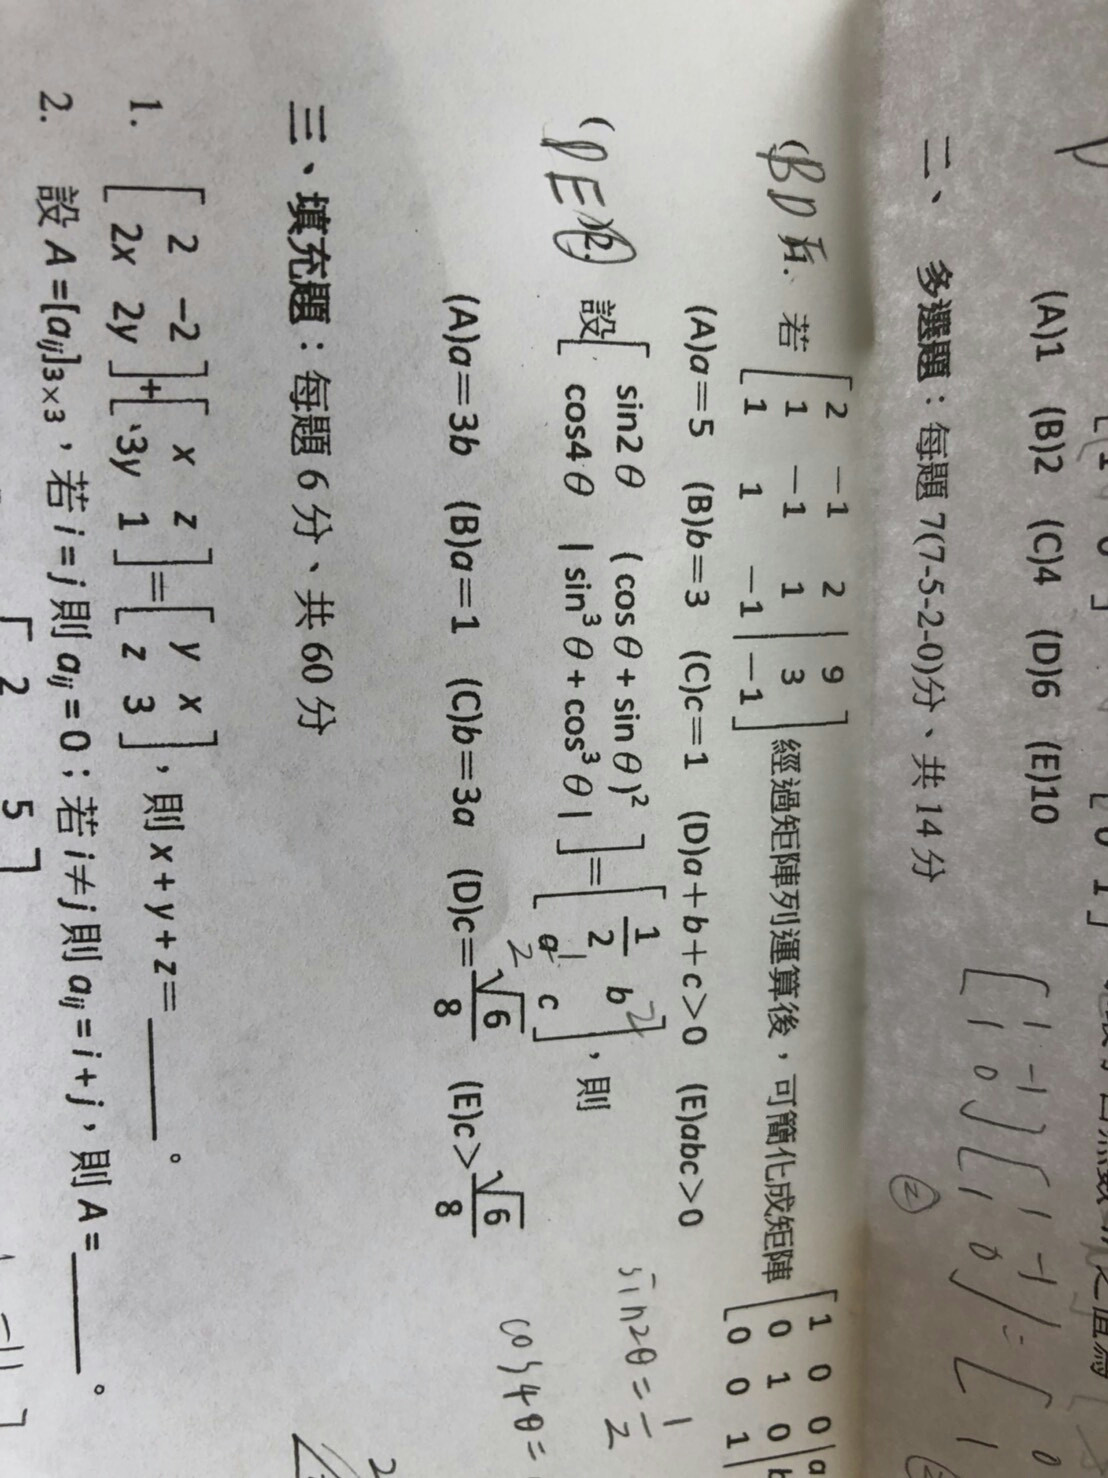 (A)1 (B)2 (C)4 (D)6 (E)10
二、 多選題：每題 7(7-5-2-0)分、共 14 分
(BD 若 [ 2 −1 2 | 9
1 −1 1 | 3
1 1 −1 | −1 ] 經過矩陣列運算後，可簡化成矩陣 [ 1 0 0 | a
0 1 0 | b
0 0 1 |
(A)a＝5 (B)b＝3 (C)c＝1 (D)a＋b＋c＞0 (E)abc＞0
(DE 2. 設 [ sin2θ (cosθ＋sinθ)²
cos4θ | sin³θ＋cos³θ | ] ＝ [ 1/2 b
a c ]，則
(A)a＝3b (B)a＝1 (C)b＝3a (D)c＝√6/8 (E)c＞√6/8
三、填充題：每題 6 分、共 60 分
1. [ 2 −2
2x 2y ] + [ x z
3y 1 ] ＝ [ y x
z 3 ]，則 x＋y＋z＝＿＿＿。
2. 設 A＝[aij]3×3，若 i＝j 則 aij＝0；若 i≠j 則 aij＝i＋j，則 A＝＿＿＿。
2 5
[ 1 −1
1 0 ] [ 1 −1
1 0 ] = [ 0
1
②
sin2θ = 1/2
cos4θ =